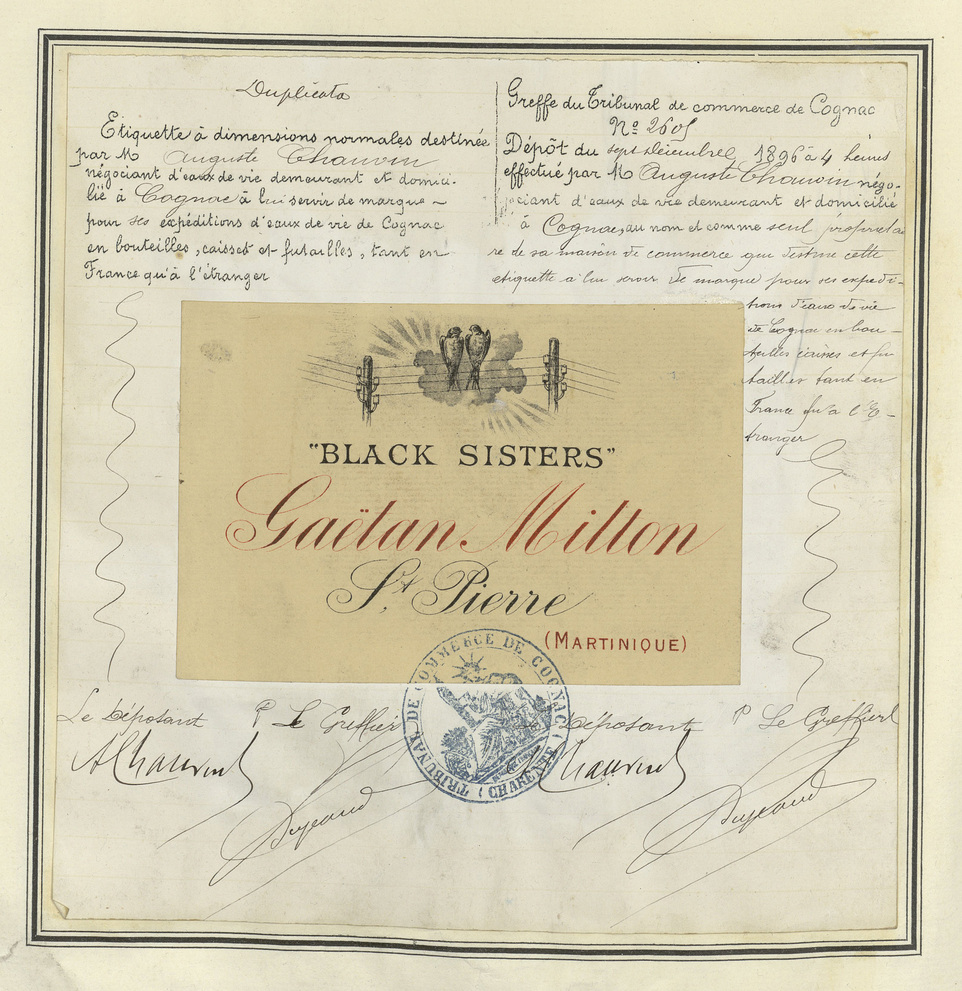 Duplicata
Etiquette à dimensions normales destinée
par M Auguste Chauvin
négociant d'eaux de vie demeurant et domici-
lié à Cognac à lui servir de marque
pour ses expéditions d'eaux de vie de Cognac
en bouteilles, caisses et futailles, tant en
France qu'à l'étranger
Greffe du Tribunal de commerce de Cognac
Nº 2605
Dépôt du sept Décembre 1896 à 4 heures
effectué par M Auguste Chauvin négo-
ciant d'eaux de vie demeurant et domicilié
à Cognac, au nom et comme seul propriétai
re de sa maison de commerce que destine cette
etiquette à lui servir de marque pour ses expedi-
tions d'eaux de vie
de Cognac en bou-
teilles caisses et fu
tailles tant en
France qu'à l'é-
tranger
"BLACK SISTERS"
Gaëtan Milton
St. Pierre
(MARTINIQUE)
TRIBUNAL DE COMMERCE DE COGNAC (CHARENTE)
Le Déposant P Le Greffier
Déposant P Le Greffier
AChauvin
Chauvin